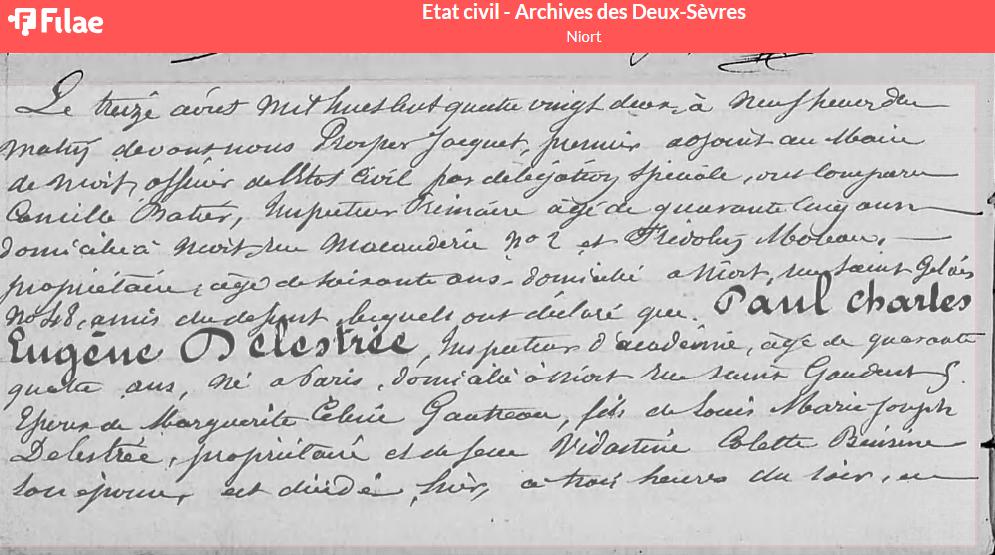 Filae
Etat civil - Archives des Deux-Sèvres
Niort
Le treize août mil huit cent quatre vingt deux, à neuf heures du
matin devant nous Prosper Jacquet, premier adjoint au Maire
de Niort, officier de l'Etat Civil par délégation spéciale, ont comparu
Camille Inspecteur Primaire âgé de quarante cinq ans
domicilié à Niort rue No 2 et Moreau,
propriétaire, âgé de soixante ans, domicilié à Niort, rue Saint Gelais
No 48, amis du défunt lesquels ont déclaré que Paul Charles
Eugène Delestrée, Inspecteur d'académie, âgé de quarante
quatre ans, né à Paris, domicilié à Niort rue Saint Gaudent 5.
Epoux de Marguerite Gautreau, fils de Louis Marie Joseph
Delestrée, propriétaire et de feue Colette
son épouse, est décédé hier, à trois heures du soir, en